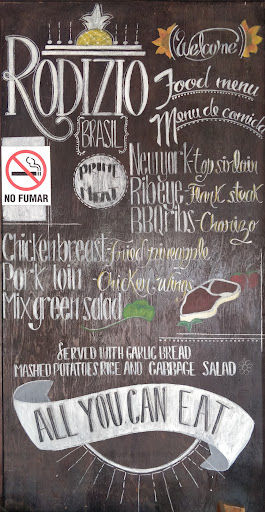 Welcome
RODIZIO
BRASIL
Food menu
Menu de comida
NO FUMAR
MENU
New york - top sirloin
Ribeye - Flank stack
BBQ ribs - Chorizo
Chicken breast - Fried pineapple
Pork loin - Chicken wings
Mix green salad
SERVED WITH GARLIC BREAD
MASHED POTATOES RICE AND CABBAGE SALAD
ALL YOU CAN EAT